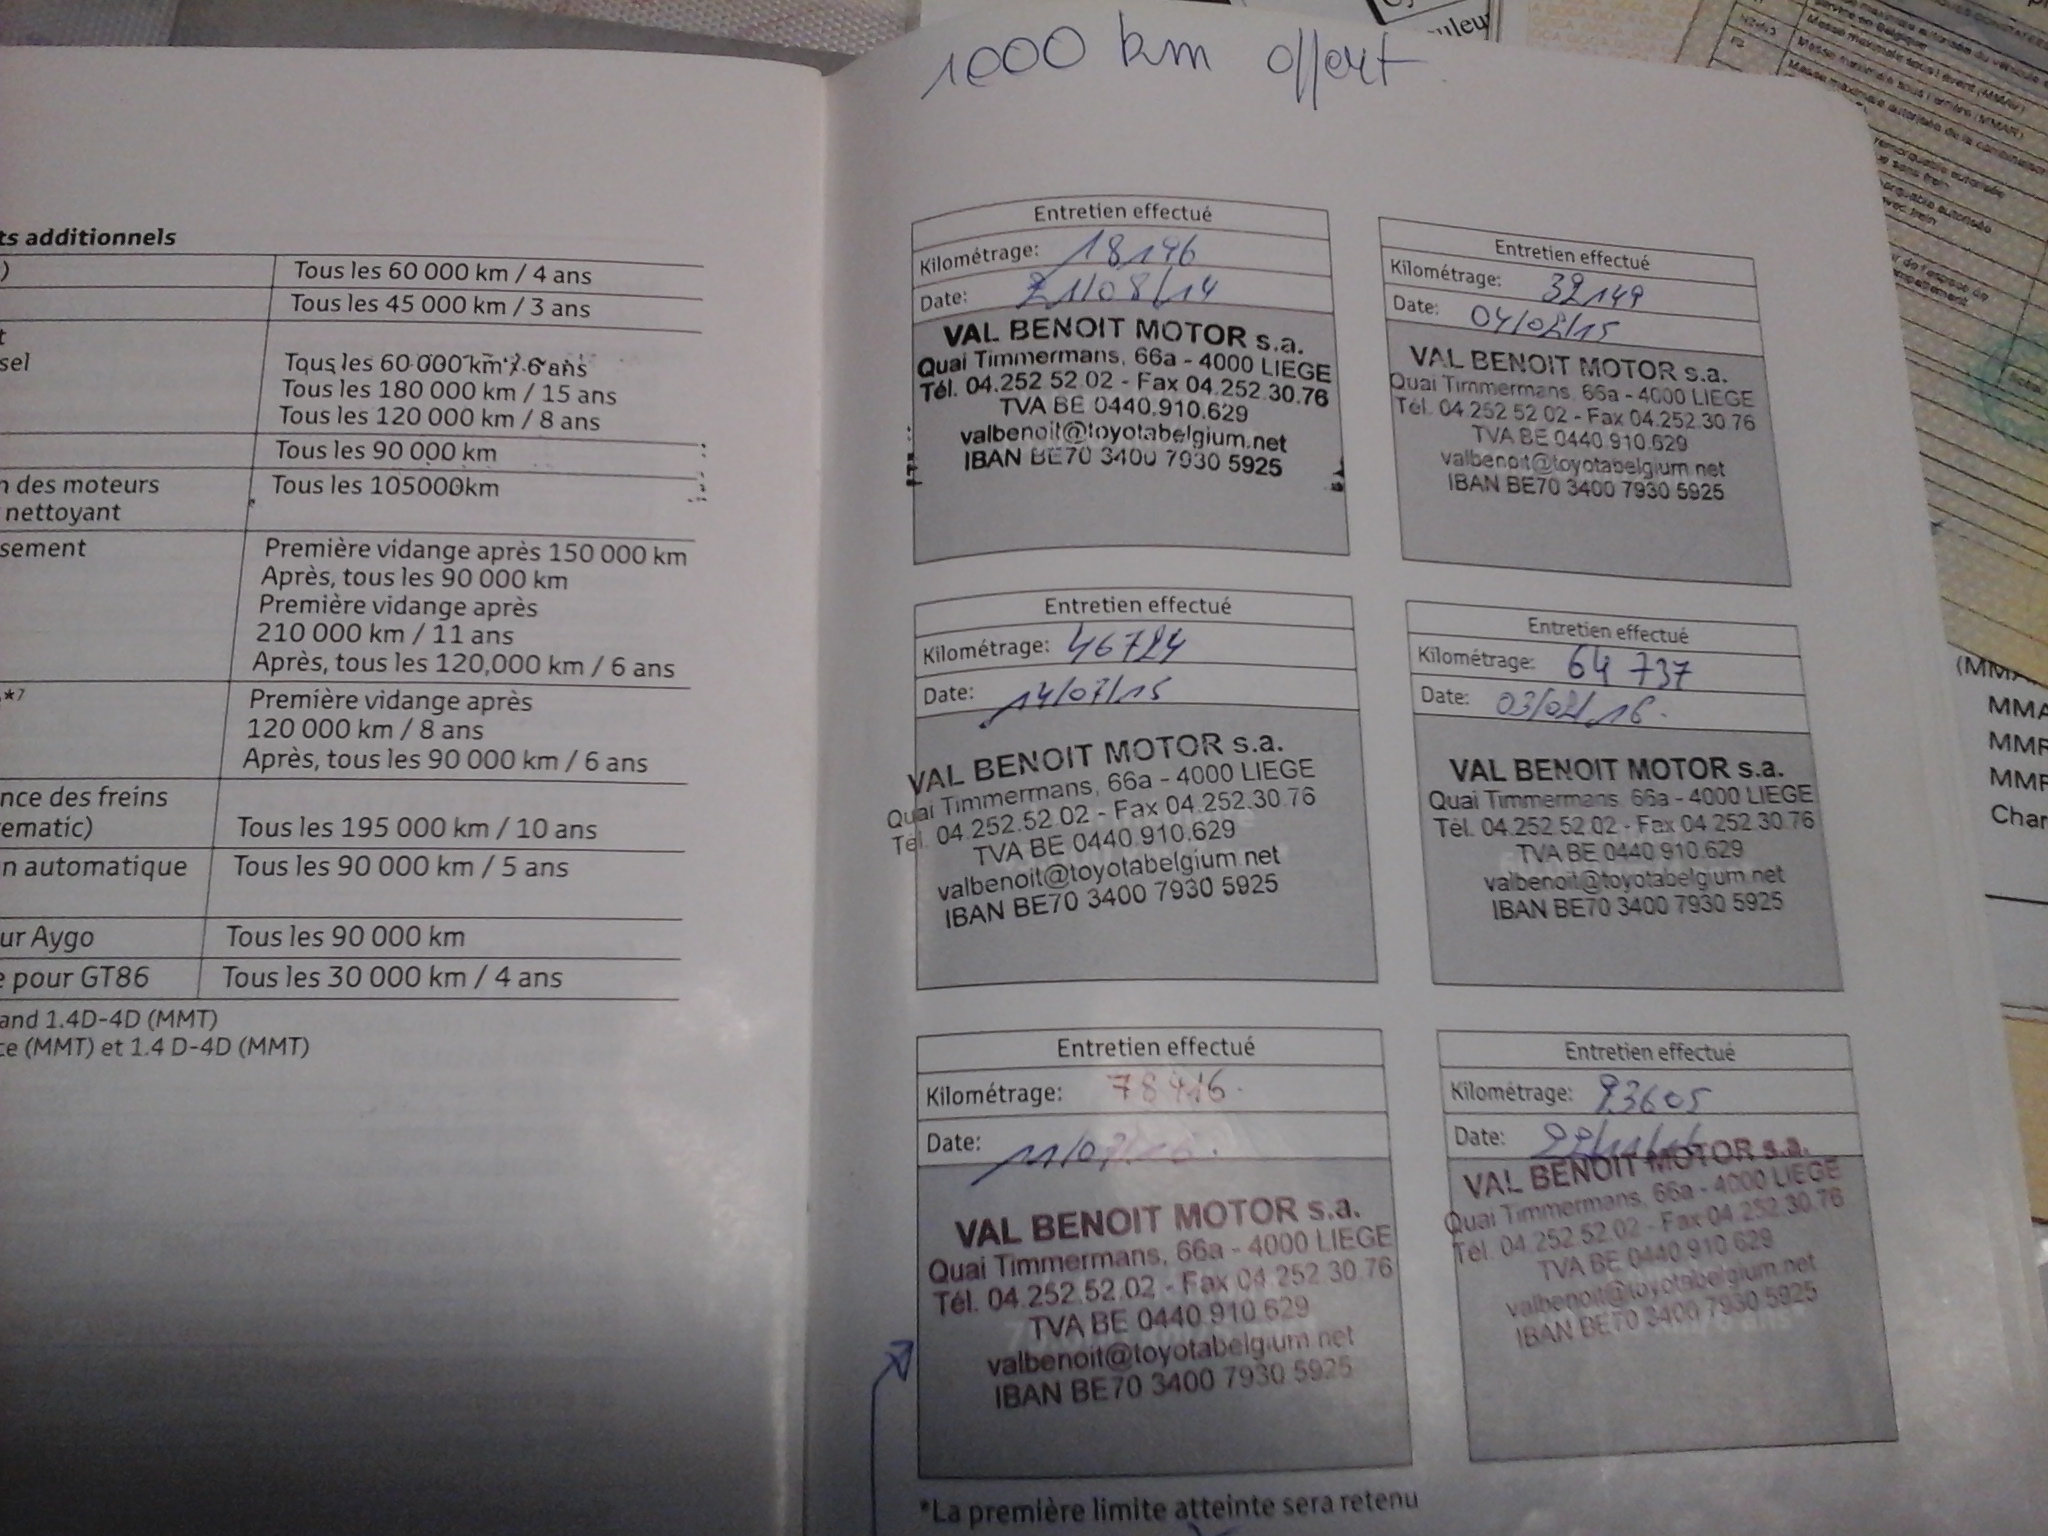 ts additionnels
)
Tous les 60 000 km / 4 ans
Tous les 45 000 km / 3 ans
t
sel
Tous les 60 000 km / 6 ans
Tous les 180 000 km / 15 ans
Tous les 120 000 km / 8 ans
Tous les 90 000 km
n des moteurs
nettoyant
Tous les 105000km
sement
Première vidange après 150 000 km
Après, tous les 90 000 km
Première vidange après
210 000 km / 11 ans
Après, tous les 120,000 km / 6 ans
*7
Première vidange après
120 000 km / 8 ans
Après, tous les 90 000 km / 6 ans
nce des freins
ematic)
Tous les 195 000 km / 10 ans
n automatique
Tous les 90 000 km / 5 ans
ur Aygo
Tous les 90 000 km
e pour GT86
Tous les 30 000 km / 4 ans
and 1.4D-4D (MMT)
ce (MMT) et 1.4 D-4D (MMT)
1000 km offert
Entretien effectué
Kilométrage: 18196
Date: 21/08/14
VAL BENOIT MOTOR s.a.
Quai Timmermans, 66a - 4000 LIEGE
Tél. 04.252.52.02 - Fax 04.252.30.76
TVA BE 0440.910.629
valbenoit@toyotabelgium.net
IBAN BE70 3400 7930 5925
Entretien effectué
Kilométrage: 32149
Date: 04/02/15
VAL BENOIT MOTOR s.a.
Quai Timmermans, 66a - 4000 LIEGE
Tél. 04.252.52.02 - Fax 04.252.30.76
TVA BE 0440.910.629
valbenoit@toyotabelgium.net
IBAN BE70 3400 7930 5925
Entretien effectué
Kilométrage: 46724
Date: 14/07/15
VAL BENOIT MOTOR s.a.
Quai Timmermans, 66a - 4000 LIEGE
Tél. 04.252.52.02 - Fax 04.252.30.76
TVA BE 0440.910.629
valbenoit@toyotabelgium.net
IBAN BE70 3400 7930 5925
Entretien effectué
Kilométrage: 64 737
Date: 03/02/16.
VAL BENOIT MOTOR s.a.
Quai Timmermans, 66a - 4000 LIEGE
Tél. 04.252.52.02 - Fax 04.252.30.76
TVA BE 0440.910.629
valbenoit@toyotabelgium.net
IBAN BE70 3400 7930 5925
Entretien effectué
Kilométrage: 78416.
Date: 11/07/16.
VAL BENOIT MOTOR s.a.
Quai Timmermans, 66a - 4000 LIEGE
Tél. 04.252.52.02 - Fax 04.252.30.76
TVA BE 0440.910.629
valbenoit@toyotabelgium.net
IBAN BE70 3400 7930 5925
Entretien effectué
Kilométrage: 93605
Date: 22/11/16
VAL BENOIT MOTOR s.a.
Quai Timmermans, 66a - 4000 LIEGE
Tél. 04.252.52.02 - Fax 04.252.30.76
TVA BE 0440.910.629
valbenoit@toyotabelgium.net
IBAN BE70 3400 7930 5925
*La première limite atteinte sera retenu
MMA
MMR
Char